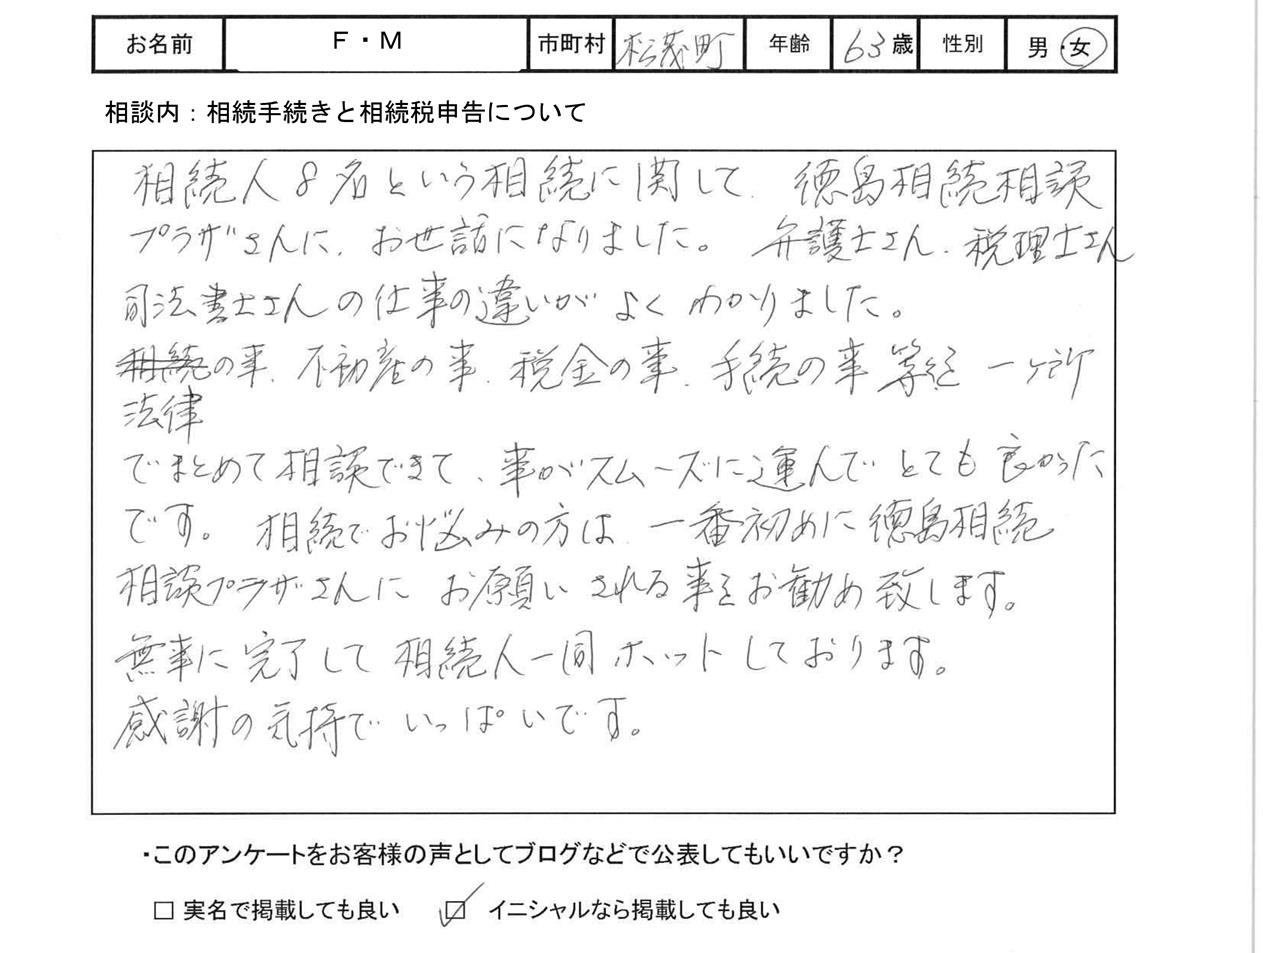 お名前 F・M 市町村 松茂町 年齢 63歳 性別 男・女
相談内：相続手続きと相続税申告について
相続人8名という相続に関して、徳島相続相談
プラザさんに、お世話になりました。弁護士さん、税理士さん
司法書士さんの仕事の違いがよくわかりました。
相続の事、不動産の事、税金の事、手続の事等を一ヶ所
法律
でまとめて相談できて、事がスムーズに運んでとても良かった
です。相続でお悩みの方は、一番初めに徳島相続
相談プラザさんにお願いされる事をお勧め致します。
無事に完了して相続人一同ホットしております。
感謝の気持でいっぱいです。
・このアンケートをお客様の声としてブログなどで公表してもいいですか？
□ 実名で掲載しても良い ☑ イニシャルなら掲載しても良い